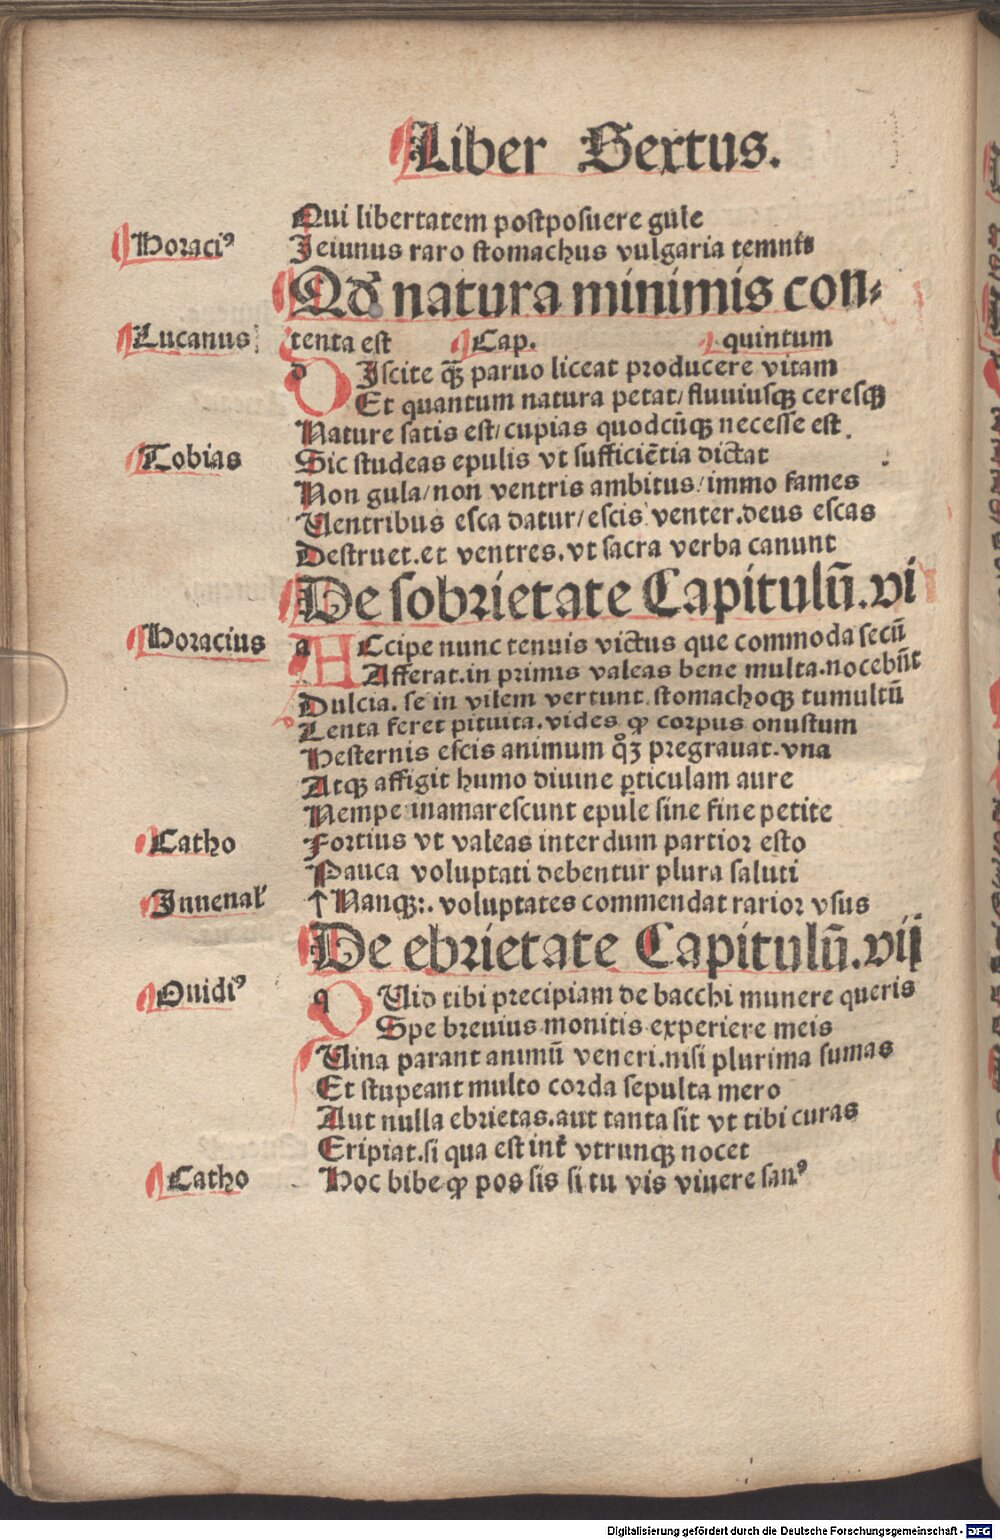 Liber Sextus.
Qui libertatem postposuere gule
Horaciꝰ Jeiunus raro stomachus vulgaria temnit
Qđ natura minimis con⸗
Lucanus tenta est Cap. quintum
d Iscite qͣꝫ paruo liceat producere vitam
Et quantum natura petat/ fluuiusqꝫ ceresqꝫ
Nature satis est/ cupias quodcūqꝫ necesse est.
Tobias Sic studeas epulis vt sufficiētia dictat
Non gula/ non ventris ambitus/ immo fames
Uentribus esca datur/ escis venter.deus escas
Destruet.et ventres.vt sacra verba canunt
De sobrietate Capitulū.vi
Horacius a Ccipe nunc tenuis victus que commoda secū
Afferat.in primis valeas bene multa.nocebūt
Dulcia. se in vilem vertunt stomachoqꝫ tumultū
Lenta feret pituita.vides ꝙ corpus onustum
Hesternis escis animum qͦꝫ pregrauat.vna
Atqꝫ affigit humo diuine ꝑticulam aure
Nempe inamarescunt epule sine fine petite
Catho Fortius vt valeas interdum partior esto
Pauca voluptati debentur plura saluti
Juuenal' ↑ Nanqꝫ:. voluptates commendat rarior vsus
De ebrietate Capitulū.vij
Ouidiꝰ q Uid tibi precipiam de bacchi munere queris
Spe breuius monitis experiere meis
Uina parant animū veneri.nisi plurima sumas
Et stupeant multo corda sepulta mero
Aut nulla ebrietas.aut tanta sit vt tibi curas
Eripiat.si qua est int̄ vtrunqꝫ nocet
Catho Hoc bibe ꝙ pos sis si tu vis viuere sanꝰ
Digitalisierung gefördert durch die Deutsche Forschungsgemeinschaft - DFG